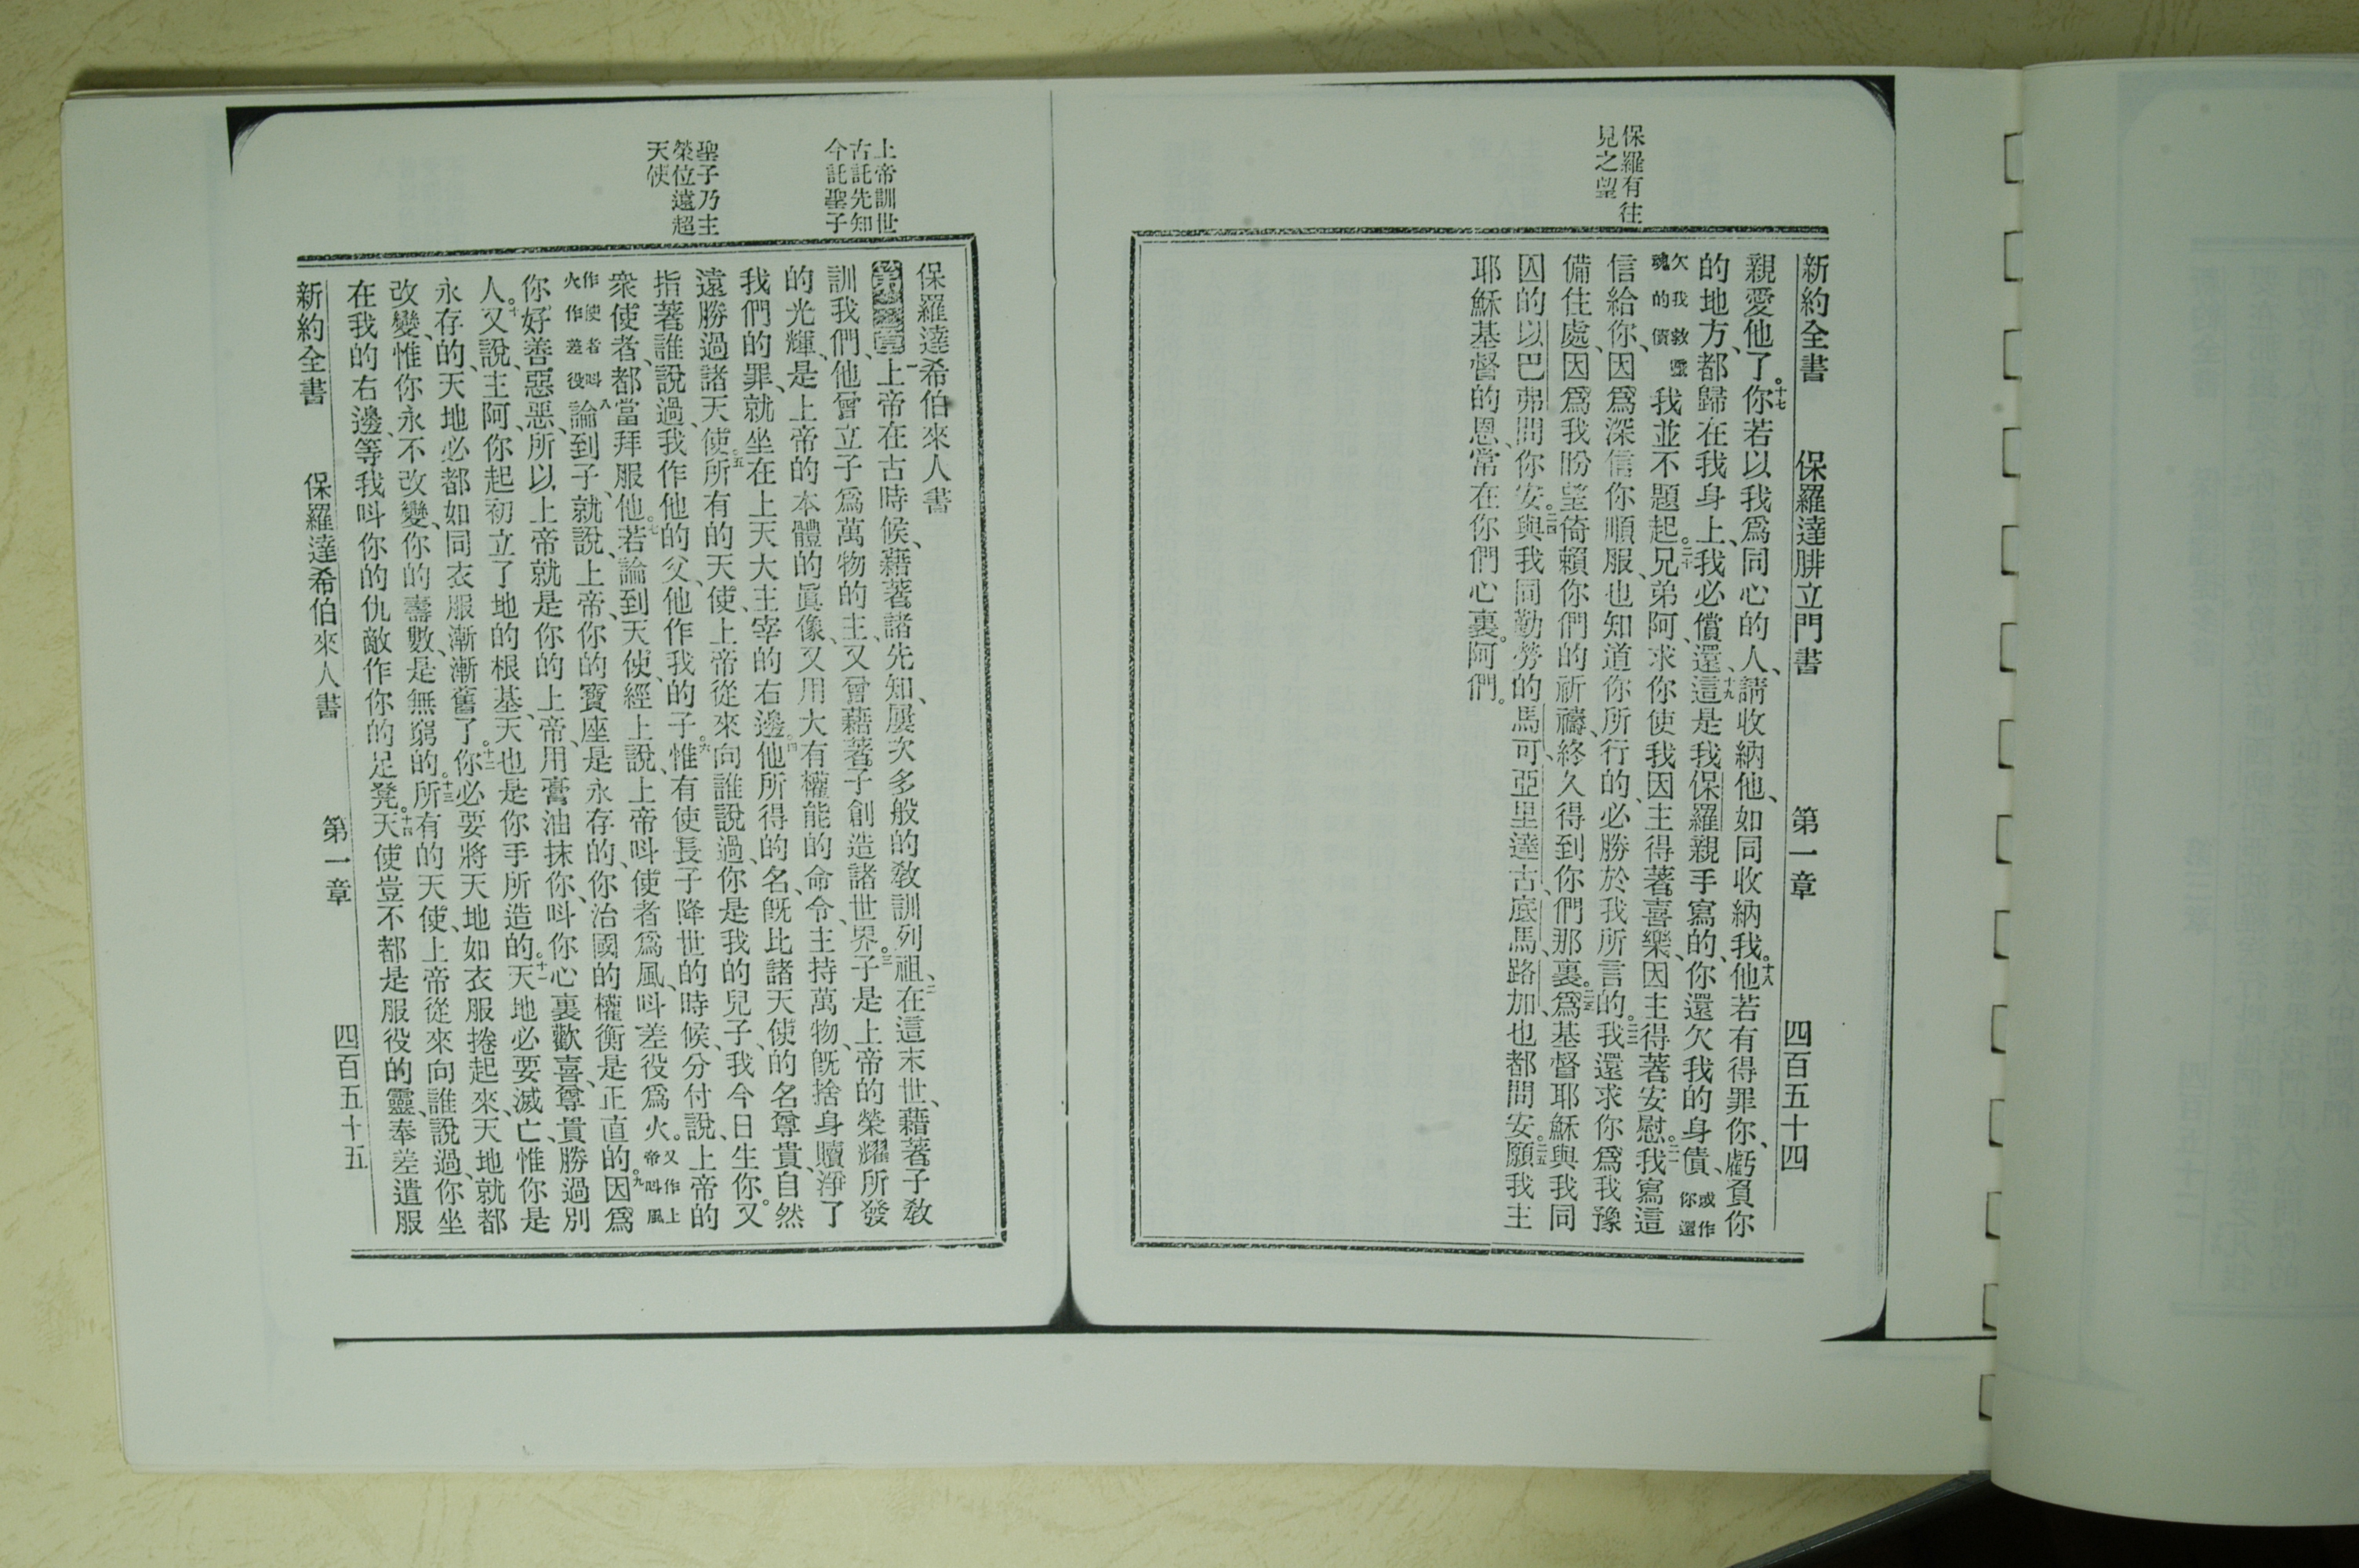 保羅有往
見之望
新約全書 保羅達腓立門書 第一章 四百五十四
親愛他了。十七你若以我爲同心的人、請收納他、如同收納我。十八他若有得罪你、虧負你
的地方、都歸在我身上、我必償還、十九這是我保羅親手寫的、你還欠我的身債、或作你還
欠我救靈魂的價我並不題起。二十兄弟阿、求你使我因主得著喜樂、因主得著安慰。二一我寫這
信給你、因爲深信你順服、也知道你所行的、必勝於我所言的。二二我還求你爲我豫
備住處、因爲我盼望倚賴你們的祈禱、終久得到你們那裏。二三爲基督耶穌與我同
囚的以巴弗問你安。二四與我同勤勞的馬可、亞里達古、底馬、路加、也都問安。二五願我主
耶穌基督的恩、常在你們心裏。阿們。
上帝訓世
古託先知
今託聖子
聖子乃主
榮位遠超
天使
保羅達希伯來人書
第一章一上帝在古時候、藉著諸先知、屢次多般的敎訓列祖、二在這末世、藉著子敎
訓我們、他曾立子爲萬物的主、又曾藉著子創造諸世界。三子是上帝的榮耀所發
的光輝、是上帝的本體的眞像、又用大有權能的命令、主持萬物、旣捨身贖淨了
我們的罪、就坐在上天大主宰的右邊。四他所得的名、旣比諸天使的名尊貴、自然
遠勝過諸天使。五所有的天使、上帝從來向誰說過、你是我的兒子、我今日生你。又
指著誰說過、我作他的父、他作我的子。六惟有使長子降世的時候、分付說、上帝的
衆使者、都當拜服他。七若論到天使、經上說、上帝呌使者爲風、呌差役爲火。又作上帝呌風
作使者呌火作差役八論到子、就說、上帝、你的寶座是永存的、你治國的權衡是正直的。九因爲
你好善惡惡、所以上帝就是你的上帝、用膏油抹你、呌你心裏歡喜、尊貴勝過別
人。十又說、主阿、你起初立了地的根基、天也是你手所造的。十一天地必要滅亡、惟你是
永存的、天地必都如同衣服漸漸舊了。十二你必要將天地如衣服捲起來、天地就都
改變、惟你永不改變、你的壽數、是無窮的。十三所有的天使、上帝從來向誰說過、你坐
在我的右邊、等我呌你的仇敵作你的足凳。十四天使豈不都是服役的靈奉差遣服
新約全書 保羅達希伯來人書 第一章 四百五十五